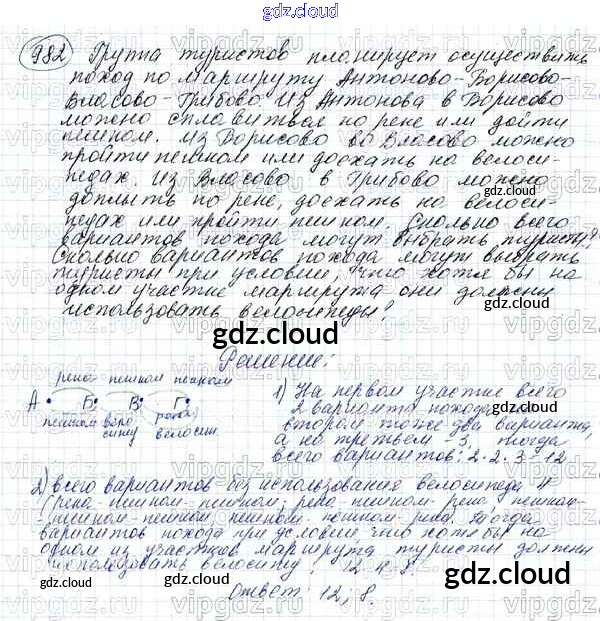 gdz.cloud
982 Группа туристов планирует осуществить
поход по маршруту Антоново-Борисово-
Власово-Грибово. Из Антонова в Борисово
можно сплавиться по реке или дойти
пешком. Из Борисово во Власово можно
пройти пешком или доехать на велоси-
педах. Из Власово в Грибово можно
доплыть по реке, доехать на велоси-
педах или пройти пешком. Сколько всего
вариантов похода могут выбрать туристы?
Сколько вариантов похода могут выбрать
туристы при условии, что хотя бы на
одном участке маршрута они должны
использовать велосипеды?
gdz.cloud
Решение:
река пешком пешком
А Б В Г
пешком вело река
сипед велосип.
1) На первом участке всего
2 варианта похода, на
втором тоже два варианта,
а на третьем - 3, тогда
всего вариантов: 2·2·3=12
2) всего вариантов без использования велосипеда 4
(река-пешком-пешком; река-пешком-река, пешком-
-пешком-пешком, пешком-пешком-река. Тогда
вариантов похода при условии, что хотя бы на
одном из участков маршрута туристы должны
использовать велосипед: 12-4=8.
Ответ: 12; 8.
gdz.cloud